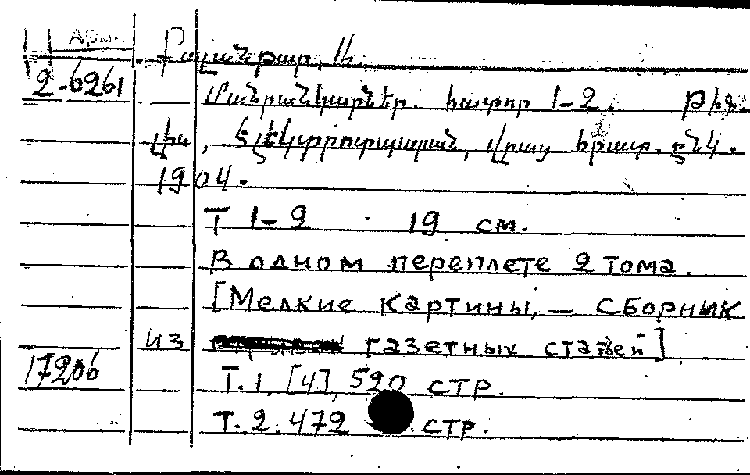 Арм.
2-6261
Քալանթար, Ա.
Մանրանկարներ. հատոր 1-2. Թիֆ-
լիս, Էլէկտրոտպարան, վրաց հրատ. ընկ.
1904.
Т 1-2 19 см.
В одном переплете 2 тома.
[Мелкие картины, — сборник
из газетных статей]
17206
Т.1, [4], 520 стр.
Т.2. 472 стр.